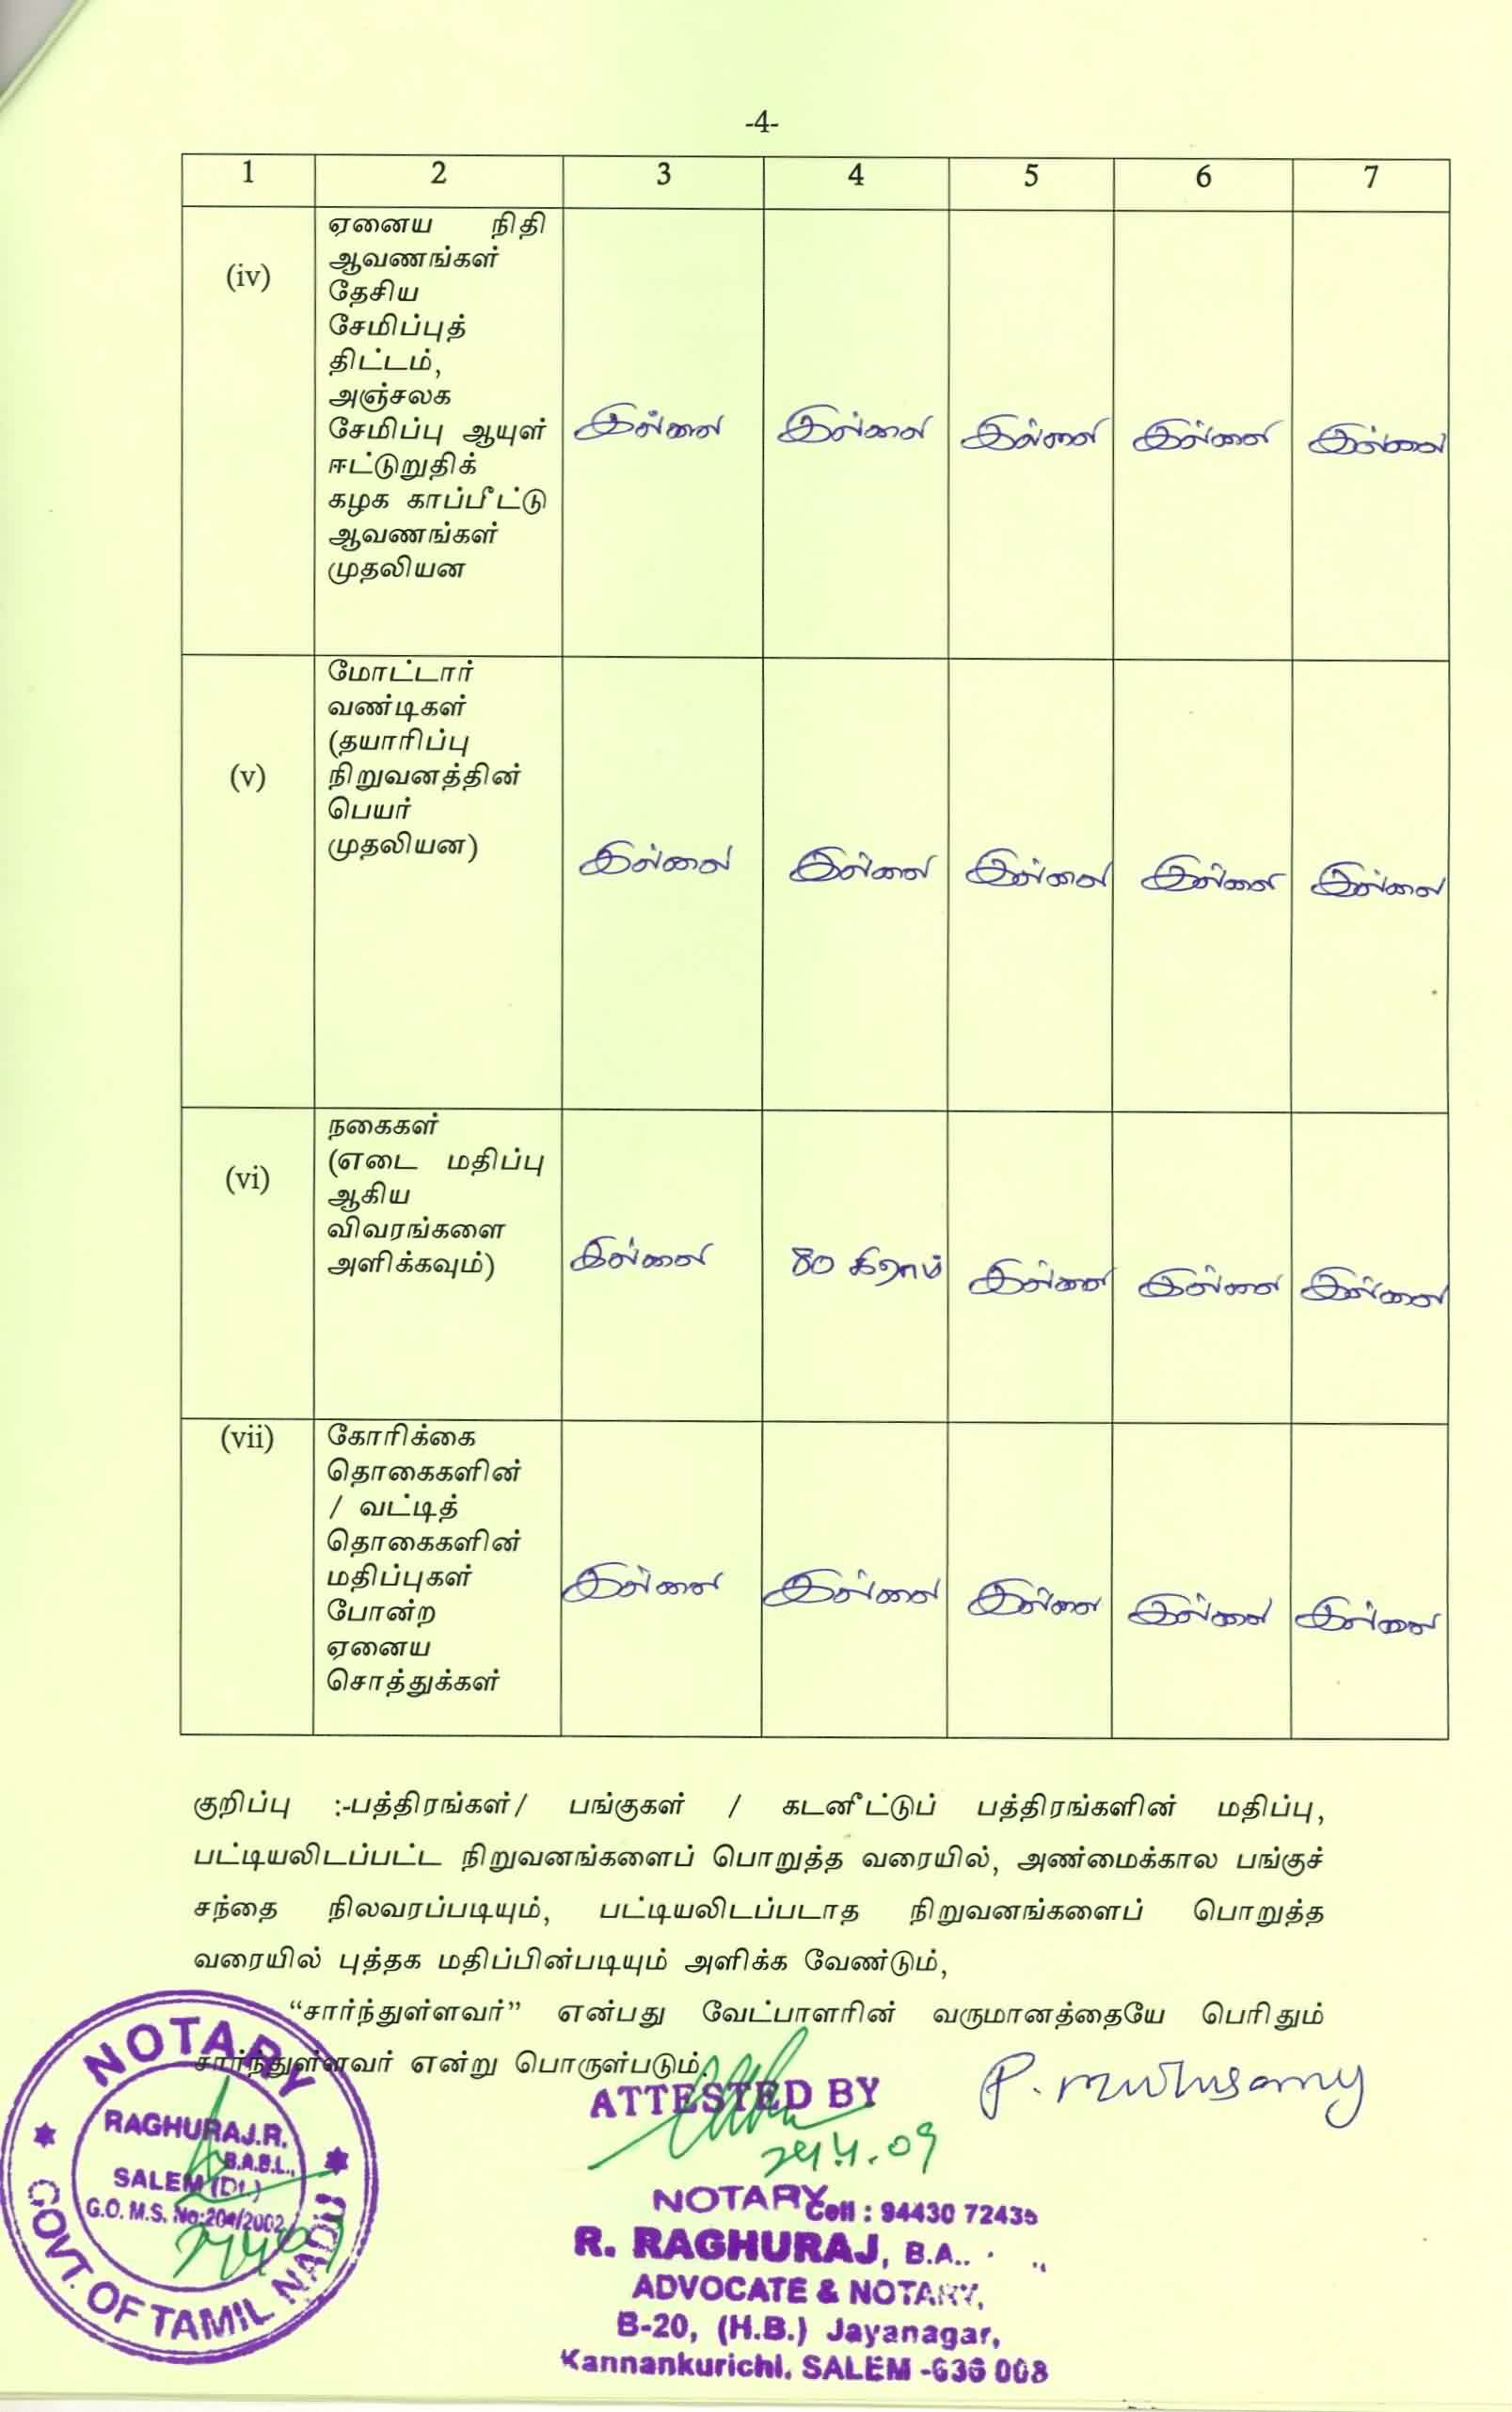 -4-
1 2 3 4 5 6 7
(iv)
ஏனைய நிதி
ஆவணங்கள்
தேசிய
சேமிப்புத்
திட்டம்,
அஞ்சலக
சேமிப்பு ஆயுள்
ஈட்டுறுதிக்
கழக காப்பீட்டு
ஆவணங்கள்
முதலியன
இல்லை இல்லை இல்லை இல்லை இல்லை
(v)
மோட்டார்
வண்டிகள்
(தயாரிப்பு
நிறுவனத்தின்
பெயர்
முதலியன)
இல்லை இல்லை இல்லை இல்லை இல்லை
(vi)
நகைகள்
(எடை மதிப்பு
ஆகிய
விவரங்களை
அளிக்கவும்)
இல்லை 80 கிராம் இல்லை இல்லை இல்லை
(vii)
கோரிக்கை
தொகைகளின்
/ வட்டித்
தொகைகளின்
மதிப்புகள்
போன்ற
ஏனைய
சொத்துக்கள்
இல்லை இல்லை இல்லை இல்லை இல்லை
குறிப்பு :-பத்திரங்கள்/ பங்குகள் / கடனீட்டுப் பத்திரங்களின் மதிப்பு,
பட்டியலிடப்பட்ட நிறுவனங்களைப் பொறுத்த வரையில், அண்மைக்கால பங்குச்
சந்தை நிலவரப்படியும், பட்டியலிடப்படாத நிறுவனங்களைப் பொறுத்த
வரையில் புத்தக மதிப்பின்படியும் அளிக்க வேண்டும்,
“சார்ந்துள்ளவர்” என்பது வேட்பாளரின் வருமானத்தையே பெரிதும்
சார்ந்துள்ளவர் என்று பொருள்படும்.
P. muthusamy
ATTESTED BY
24.4.09
NOTARY
Cell : 94430 72435
R. RAGHURAJ, B.A..
ADVOCATE & NOTARY,
B-20, (H.B.) Jayanagar,
Kannankurichi, SALEM -636 008
NOTARY
RAGHURAJ.R.
B.A.B.L.,
SALEM (Dt.)
G.O. M.S. No:204/2002
GOVT. OF TAMIL NADU